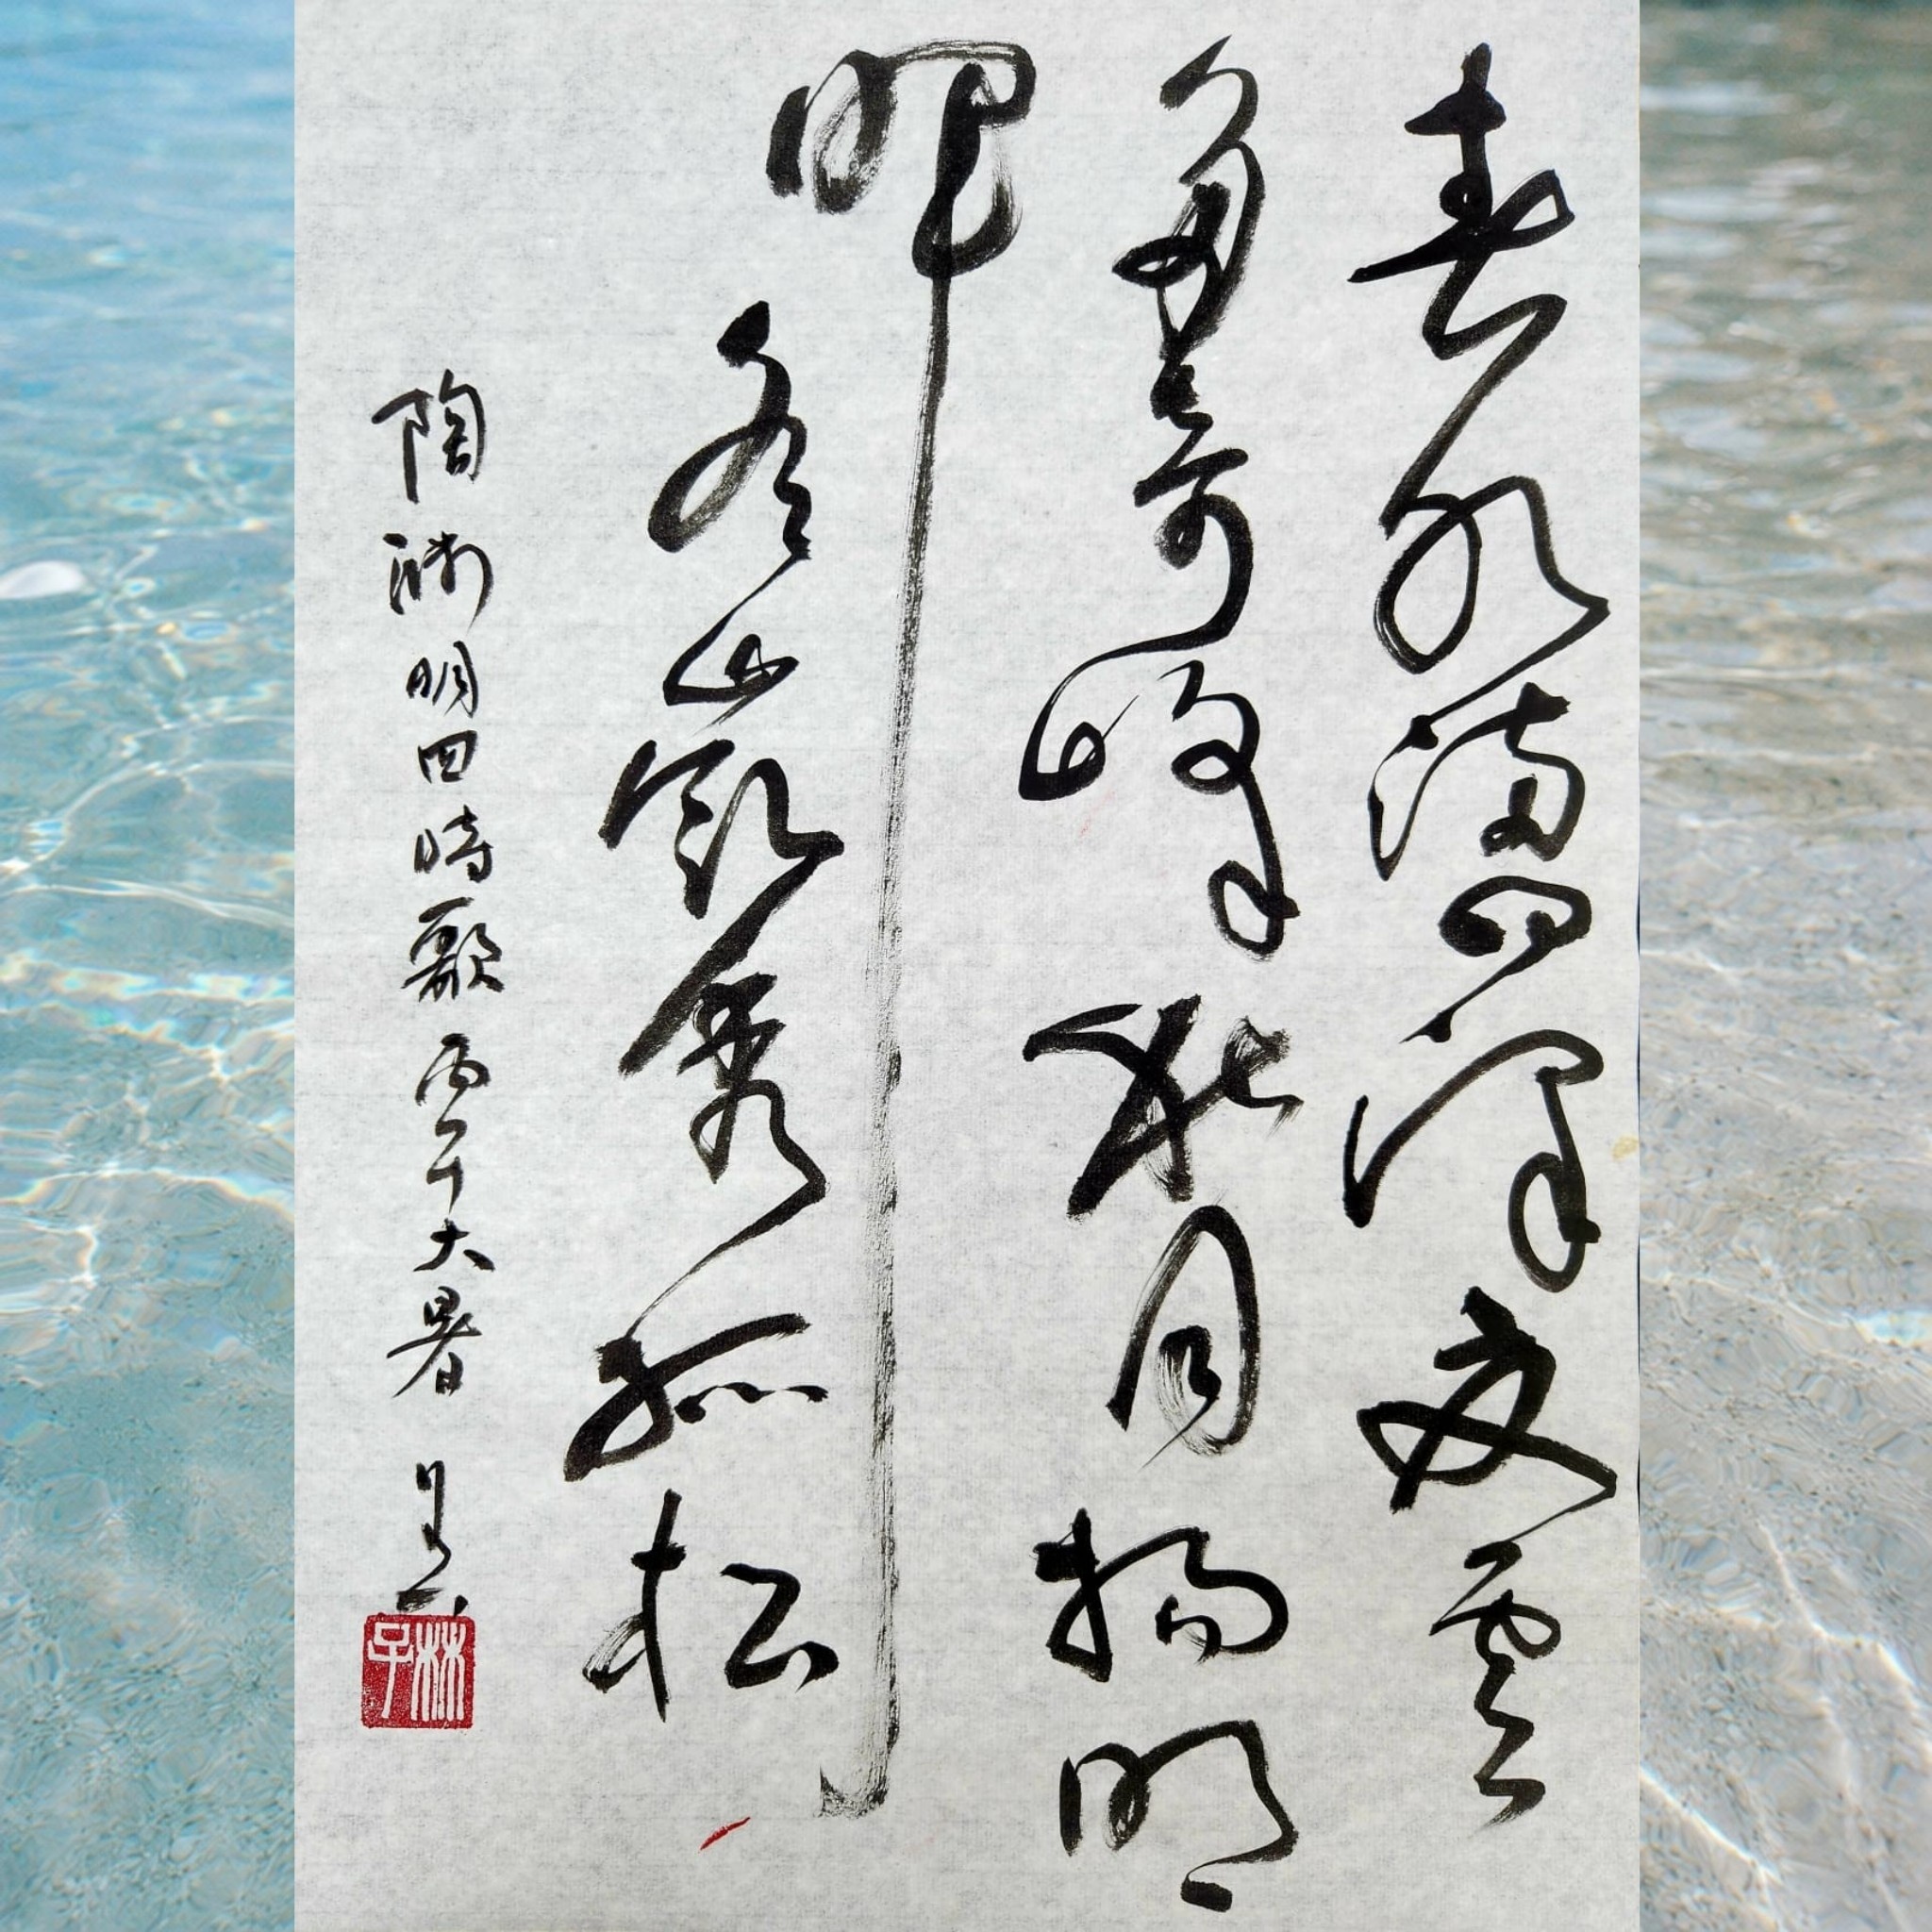 春水滿四澤夏雲
多奇峰秋月揚明
暉冬嶺秀孤松
陶渊明四時歌 丙午大暑
林子